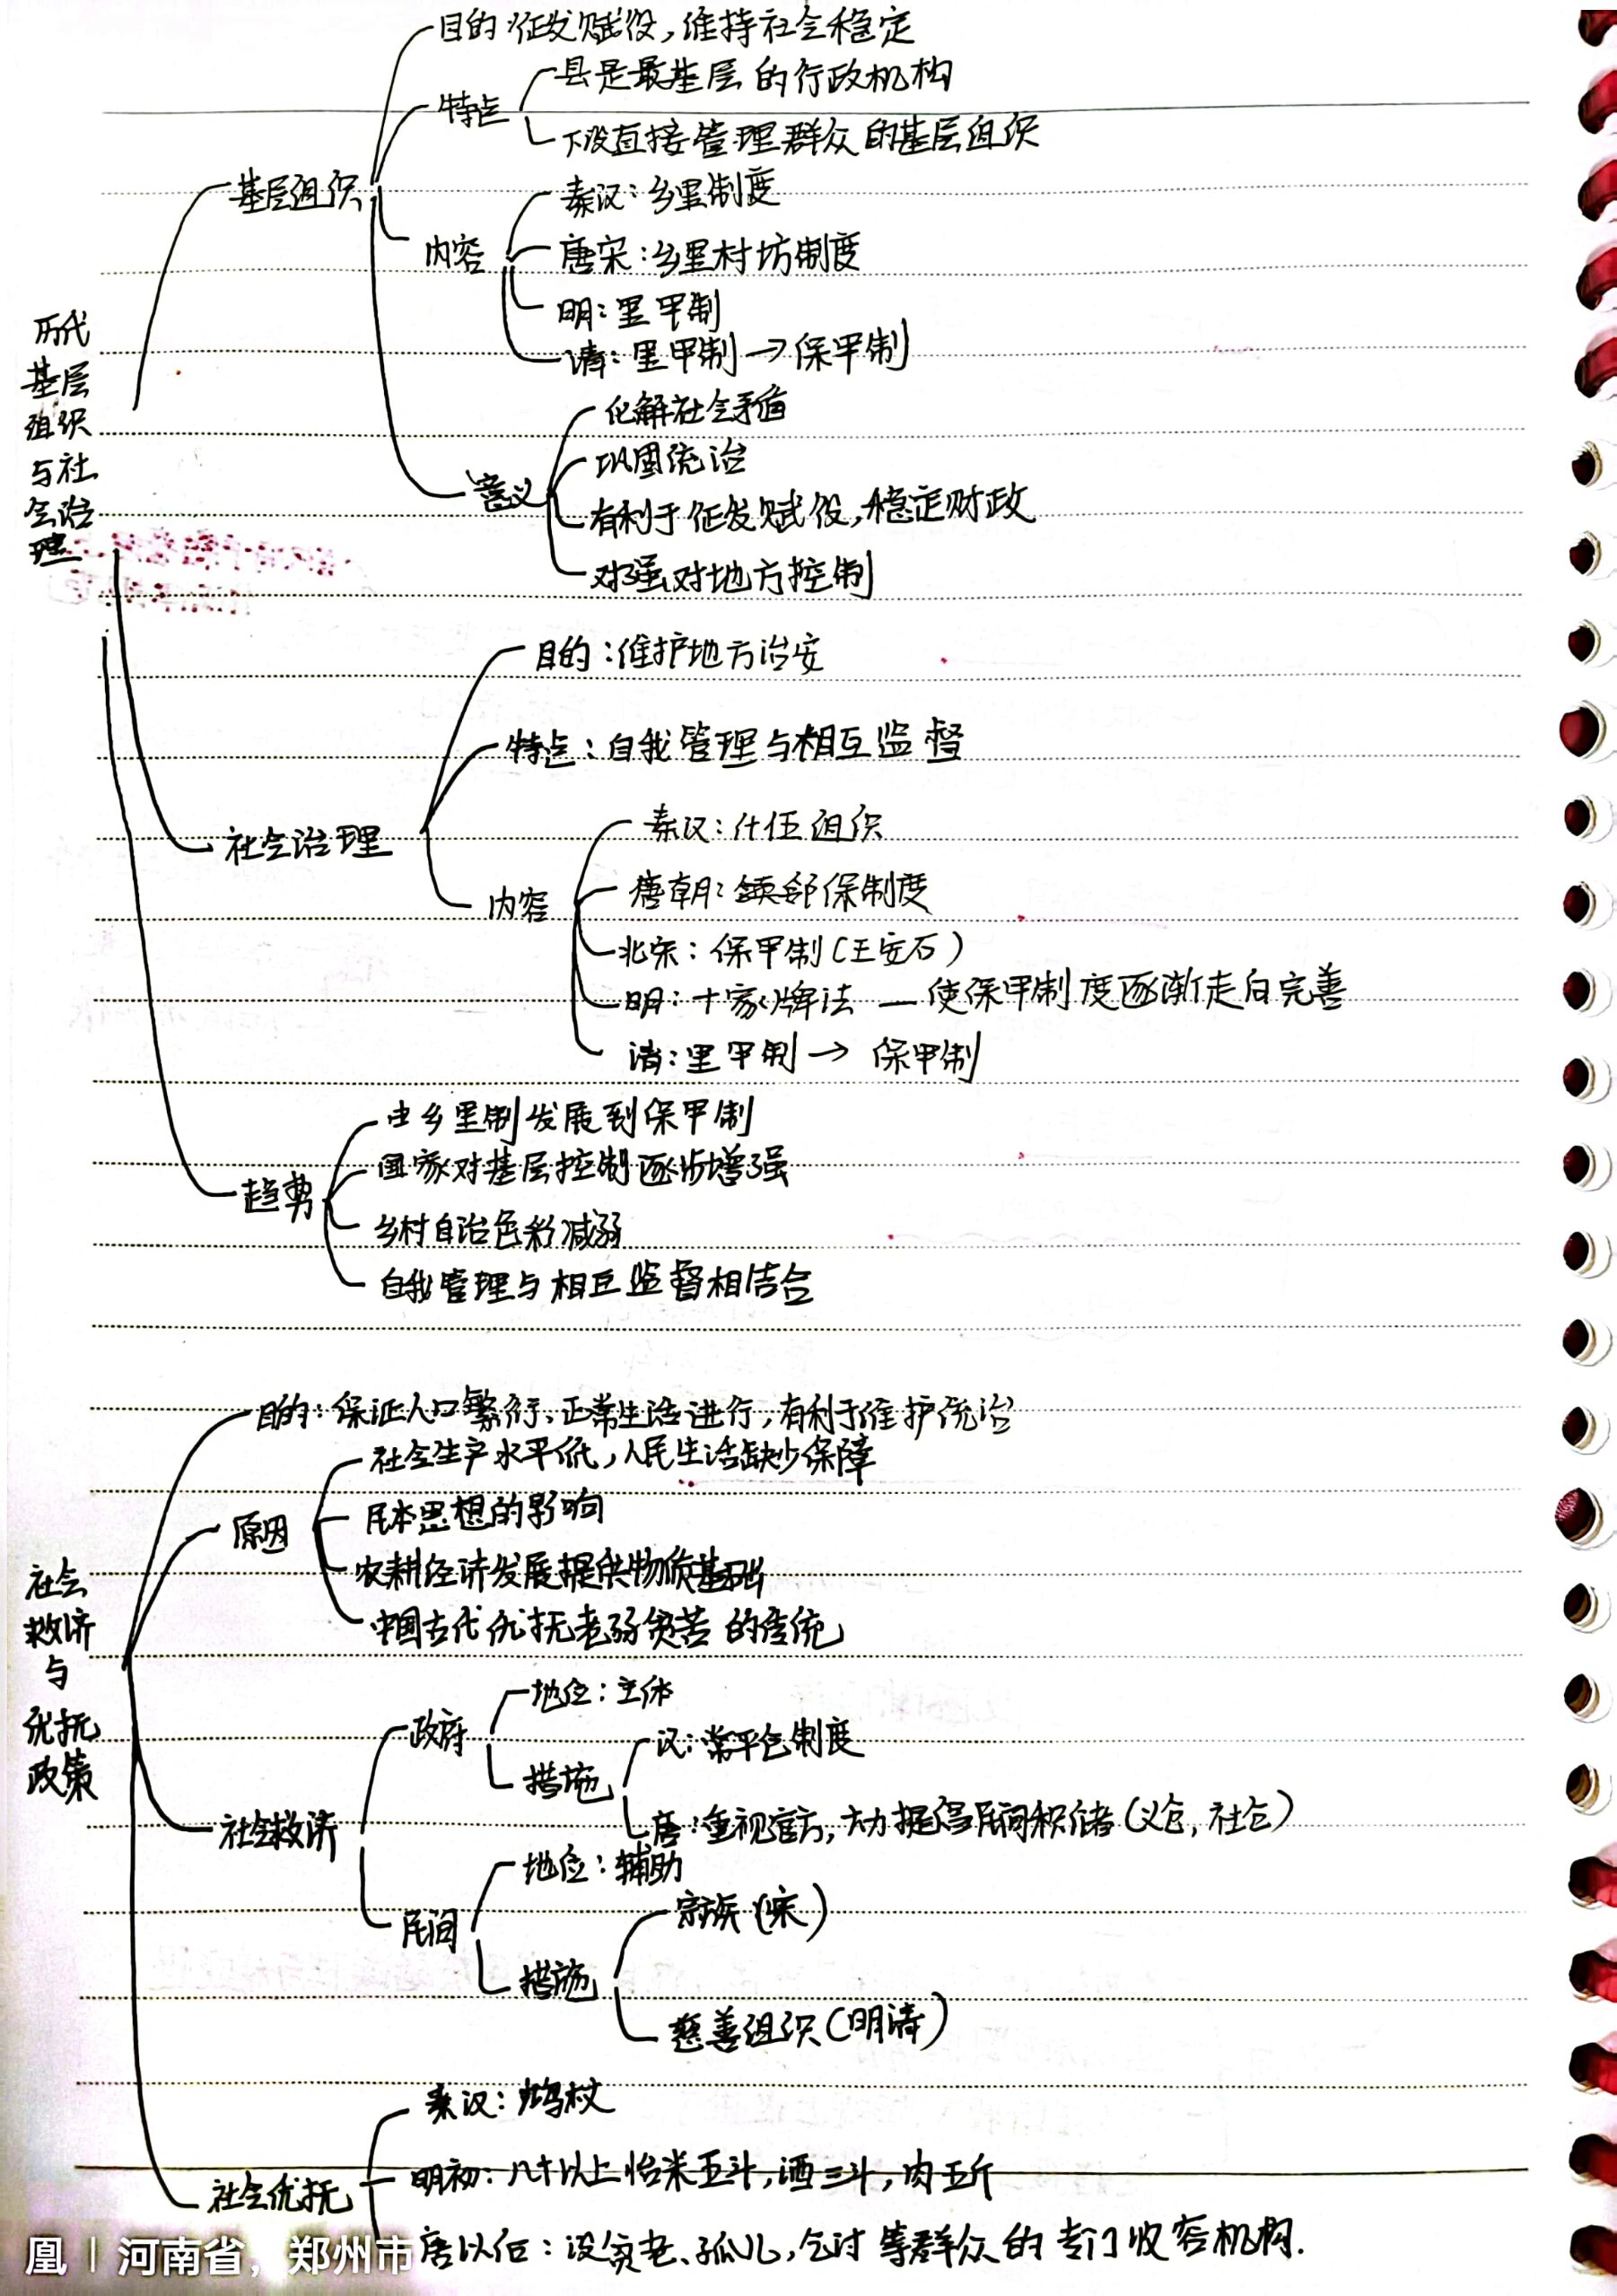 历代
基层
组织
与社
会治
理
基层组织
目的:征发赋役,维持社会稳定
特点
县是最基层的行政机构
下设直接管理群众的基层组织
内容
秦汉:乡里制度
唐宋:乡里村坊制度
明:里甲制
清:里甲制→保甲制
意义
化解社会矛盾
巩固统治
有利于征发赋役,稳定财政
对强对地方控制
社会治理
目的:维护地方治安
特点:自我管理与相互监督
内容
秦汉:什伍组织
唐朝:邻保制度
北宋:保甲制(王安石)
明:十家牌法—使保甲制度逐渐走向完善
清:里甲制→保甲制
趋势
由乡里制发展到保甲制
国家对基层控制逐步增强
乡村自治色彩减弱
自我管理与相互监督相结合
社会
救济
与
优抚
政策
目的:保证人口繁衍、正常生活进行,有利于维护统治
原因
社会生产水平低,人民生活缺少保障
民本思想的影响
农耕经济发展提供物质基础
中国古代优抚老弱贫苦的传统
社会救济
政府
地位:主体
措施
汉:常平仓制度
唐:重视官方,大力提倡民间积储(义仓,社仓)
民间
地位:辅助
措施
宗族(宋)
慈善组织(明清)
社会优抚
秦汉:鸠杖
明初:八十以上给米五斗,酒三斗,肉五斤
唐以后:设贫老、孤儿,乞讨等群众的专门收容机构.
凰 | 河南省,郑州市